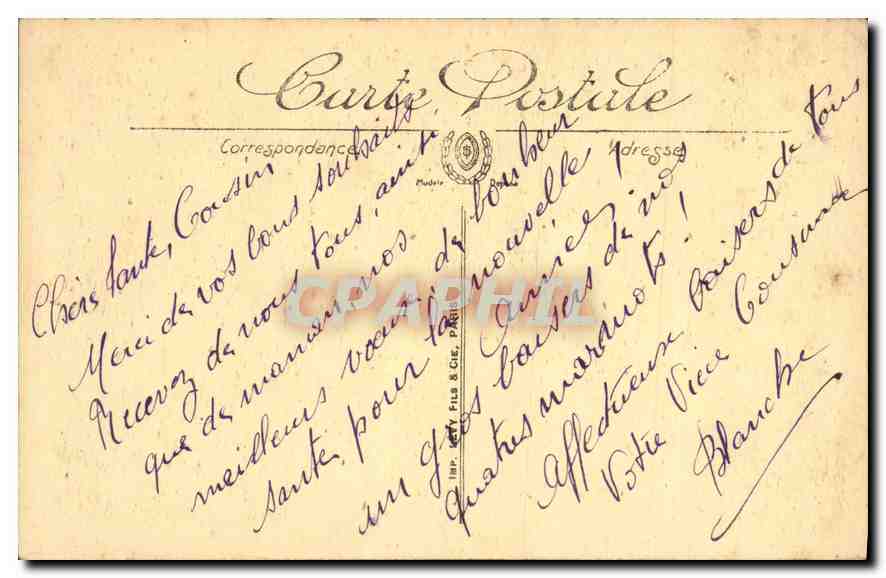 Carte Postale
Correspondance
Adresse
Modèle Déposé
Chère tante, Cousin
Merci de vos bons souhaits
Recevez de nous tous, ainsi
que de maman, nos
meilleurs voeux, de bonheur
santé, pour la nouvelle
année,
un gros baisers de nos
quatres marmots !
Affectueux baisers de tous
Votre Vieille Cousine
Blanche
IMP. LEVY FILS & CIE, PARIS
CPAPHIL